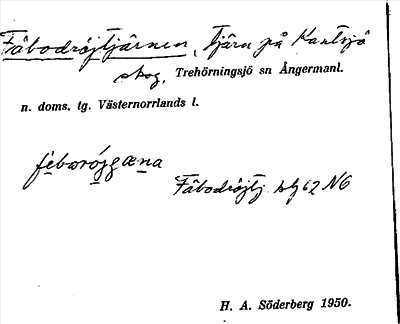 Fäbodröjtjärnen, Tjärn på Kantsjö
skog, Trehörningsjö sn Ångermanl.
n. doms. tg. Västernorrlands l.
febaróggæna
Fäbodröjtj. blg 62 NG
H. A. Söderberg 1950.